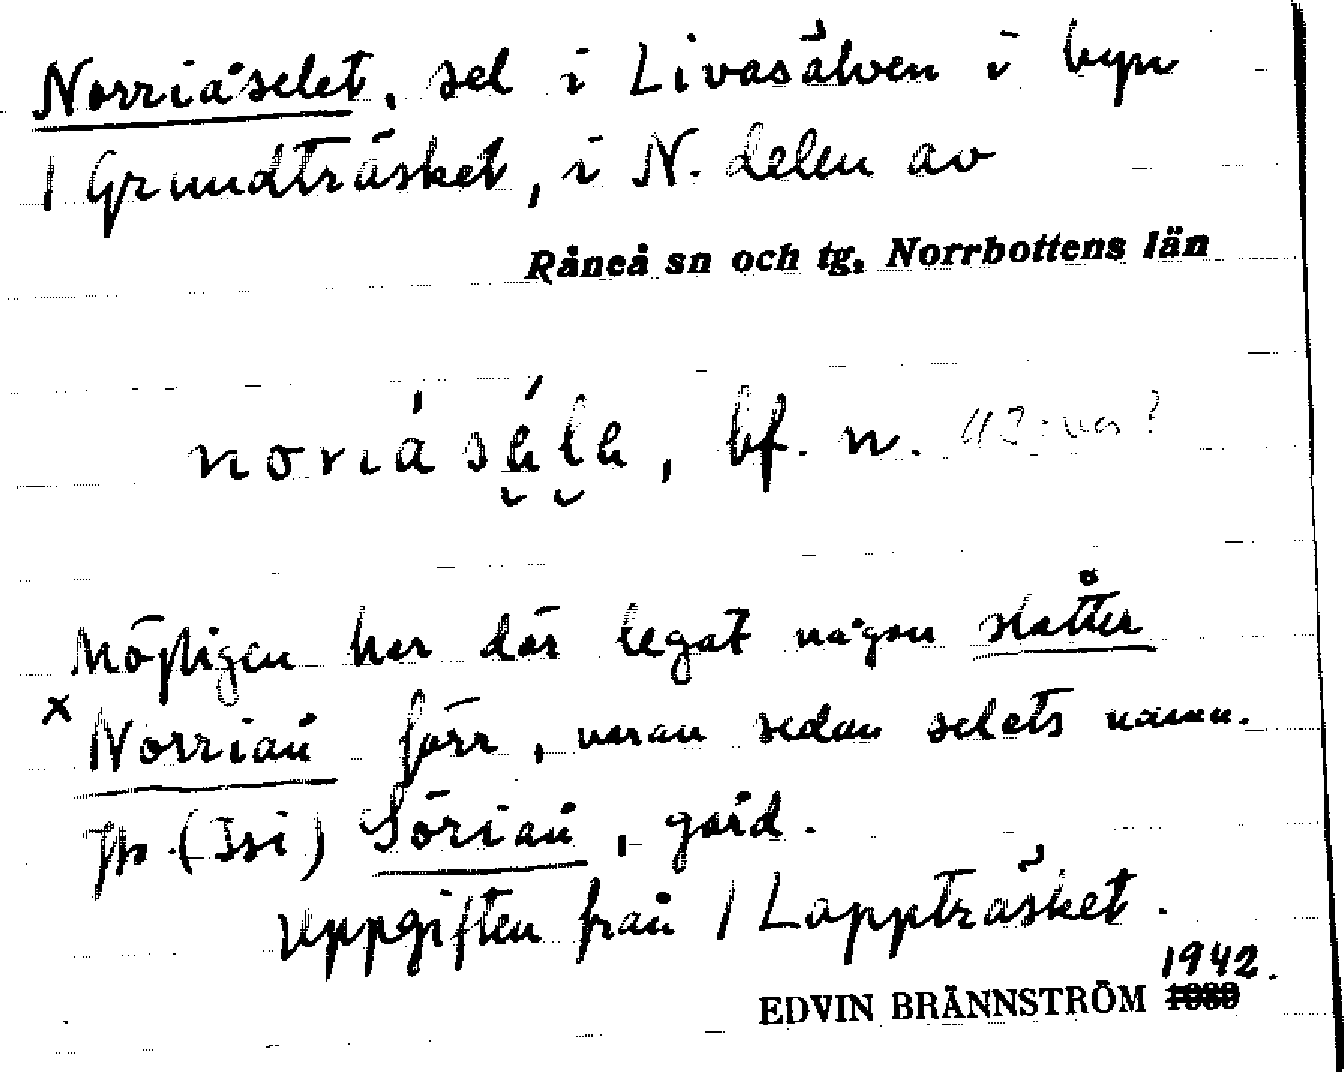 Norriåselet, sel i Livasälven i byn
/ Grundträsket, i N. delen av
Råneå sn och tg, Norrbottens län
noriåsele, bf. n.
Möjligen har där legat någon slåtter
x Norrian förr, varav sedan selets namn.
jfr (Isi) Sörian, gård.
Uppgiften från / Lappträsket.
1942.
EDVIN BRÄNNSTRÖM